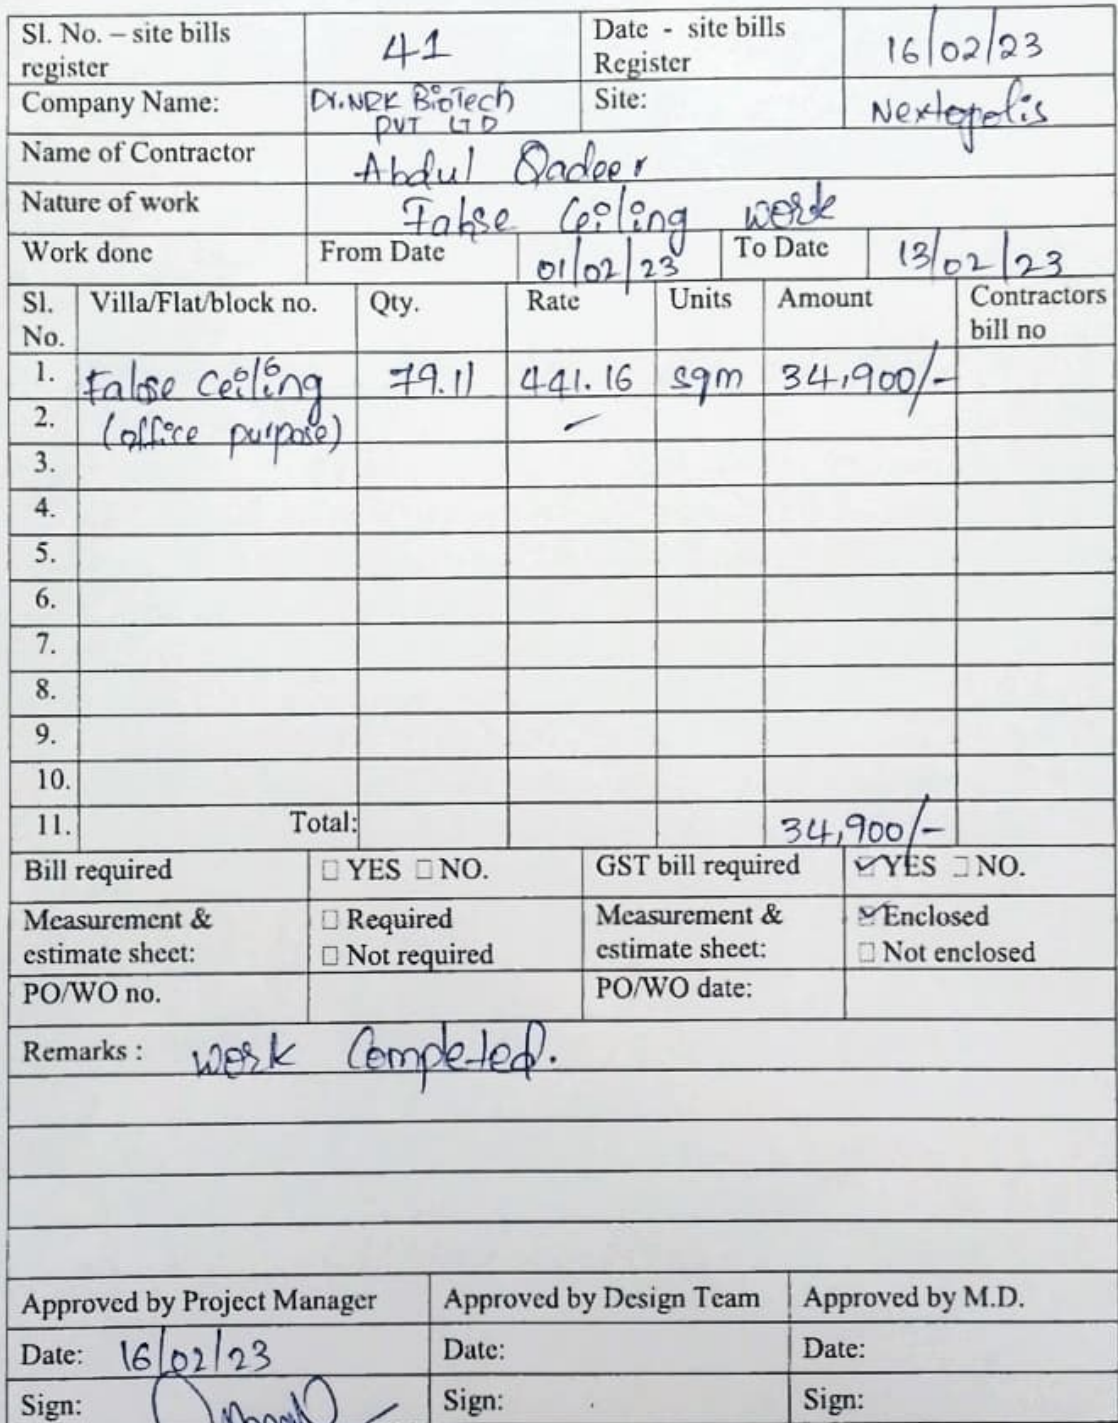 Sl. No. – site bills register 41 Date - site bills Register 16/02/23
Company Name: Dr. NRK BioTech PVT LTD Site: Nextopolis
Name of Contractor Abdul Qadeer
Nature of work False Ceiling work
Work done From Date 01/02/23 To Date 13/02/23
Sl. No. Villa/Flat/block no. Qty. Rate Units Amount Contractors bill no
1. False Ceiling 79.11 441.16 sqm 34,900/-
2. (office purpose)
3.
4.
5.
6.
7.
8.
9.
10.
11. Total: 34,900/-
Bill required □ YES □ NO. GST bill required ☑ YES □ NO.
Measurement & estimate sheet: □ Required □ Not required Measurement & estimate sheet: ☑ Enclosed □ Not enclosed
PO/WO no. PO/WO date:
Remarks : work Completed.
Approved by Project Manager Approved by Design Team Approved by M.D.
Date: 16/02/23 Date: Date:
Sign: Sign: Sign: